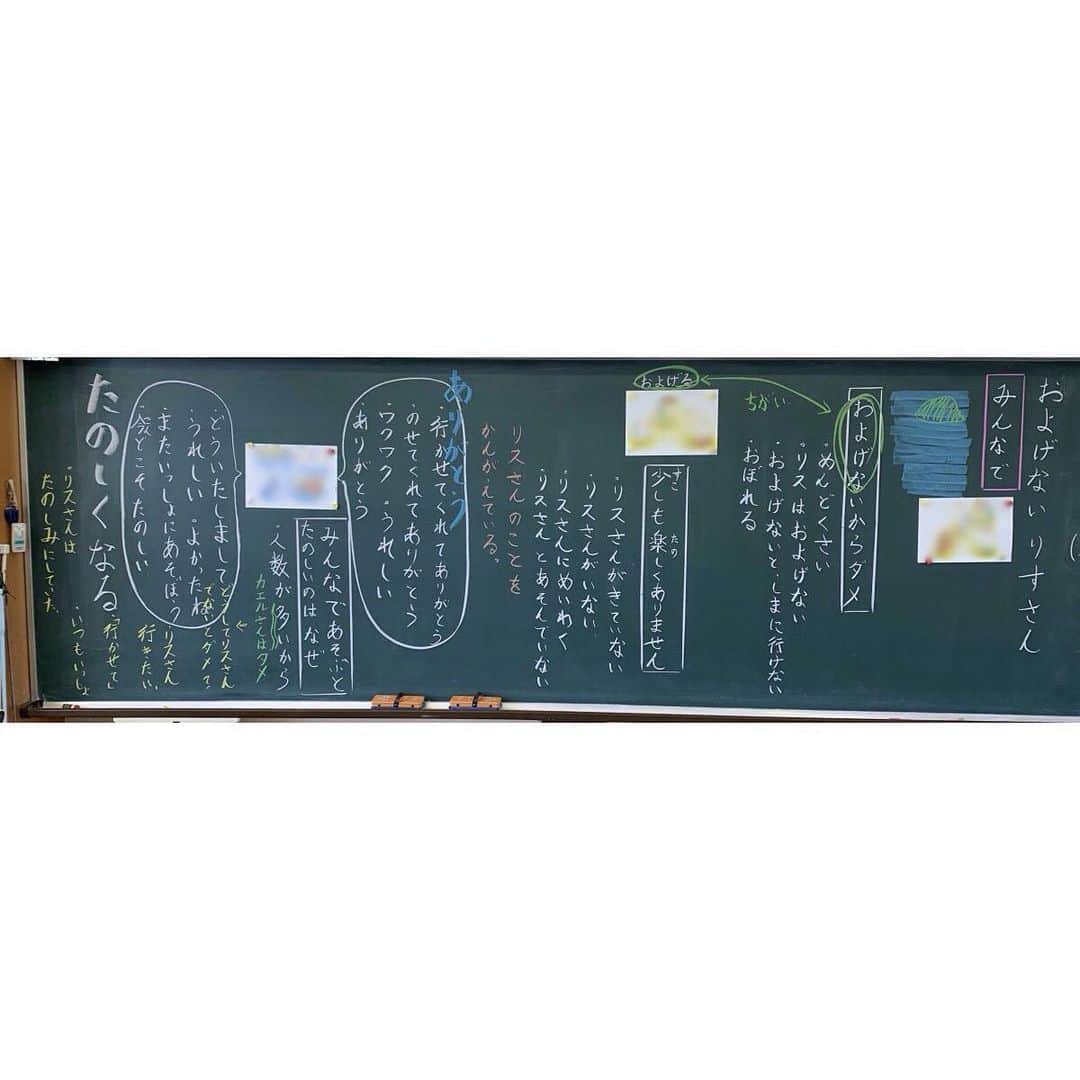 およげない りすさん
みんなで
およげないからダメ
・めんどくさい
・リスはおよげない
・およげないと・しまに行けない
・おぼれる
ちがい
およげる
少しも楽しくありません
すこ
たの
・リスさんがきていない
・リスさんがいない
・リスさんにめいわく
・リスさんとあそんでいない
リスさんのことを
かんがえている。
ありがとう
・行かせてくれてありがとう
・のせてくれてありがとう
・ワクワク ・うれしい
・ありがとう
みんなであそぶと
たのしいのはなぜ
・人数が多いから
カエルさんはダメ
・どういたしまして
・うれしい ・よかったね
・またいっしょにあそぼう
・今どこそたのしい
どうしてリスさん
でないとダメ?
・リスさん
行きたい。
・行かせて
・いつもいっしょ
たのしくなる
・リスさんは
たのしみにしていた。